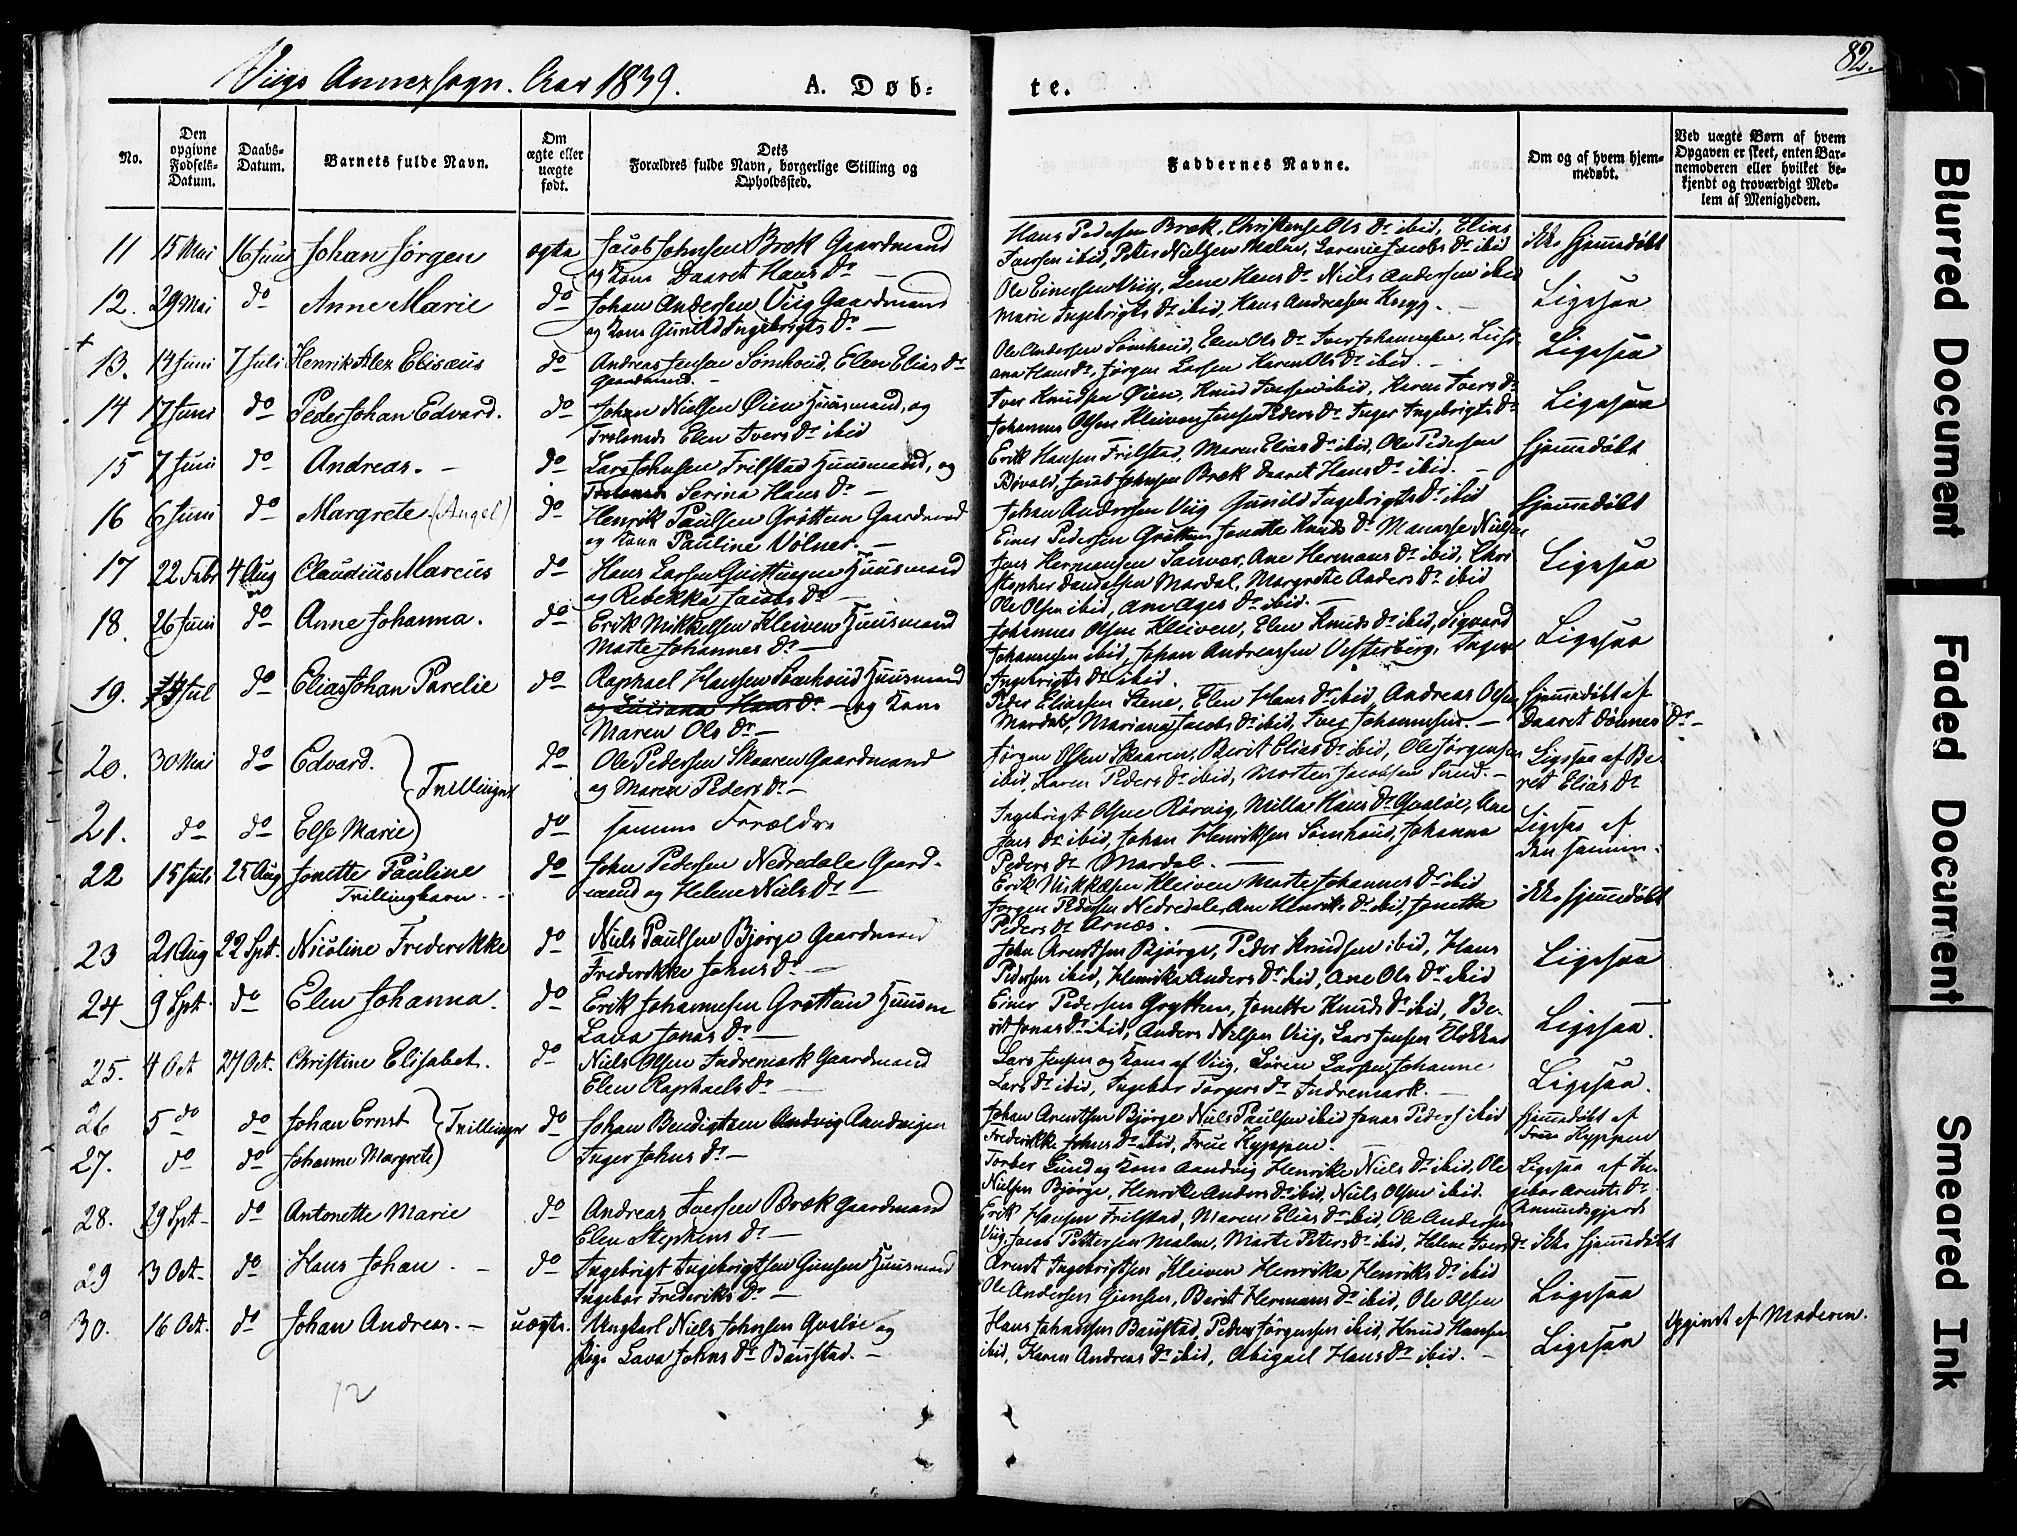 82.
Viigs Annexsogn. Aar 1839.
A. Døb=
te.
No.
Den opgivne Fødsels-Datum.
Daabs-Datum.
Barnets fulde Navn.
Om ægte eller uægte født.
Dets Forældres fulde Navn, borgerlige Stilling og Opholdssted.
Faddernes Navne.
Om og af hvem hjem-medøbt.
Ved uægte Børn af hvem Opgaven er skeet, enten Bar-nemoderen eller hvilket be-kjendt og troværdigt Med-lem af Menigheden.
11 15 Mai 16 Juni Johan Jørgen ægte Jacob Johnsen Bræk Gaardmand
og Kone Daaret Hans Dr —
Hans Pedersen Bræk, Christense Ols Dr ibid, Elias
Iversen ibid, Peter Nielsen Malm, Lorentse Jacobs Dr ibid
ikke hjemmedøbt
12. 29 Mai do Anne Marie do Johan Andersen Viig Gaardmand
og Kone Gunild Ingebrigts Dr —
Ole Einersen Viig, Lene Hans Dr Niels Andersen ibid
Marie Ingebrigts Dr ibid, Hans Andreasen
Ligesaa
+
13. 14 Juni 7 Juli Henrik Alex Elisæus do Andreas Jensen Sømhoud, Elen Elias Dr
Gaardmand. —
Ole Andersen Sømhoud, Elen Ols Dr Iver Johannesen, Luci-
ana Hans Dr, Jørgen Larsen Karen Ols Dr ibid.
Ligesaa
14 17 Juni do Peder Johan Edvard. do Johan Nielsen Øien Huusmand, og
Elen Ivers Dr ibid
Iver Knudsen Øien, Knud Iversen ibid, Karen Ivers Dr
Johannes Olsen Kleiven, Peders Dr Inger Ingebrigts Dr
Ligesaa
15 7 Juni do Andreas. — do Lars Johnsen Frilstad Huusmand, og
Serina Hans Dr —
Erik Hansen Frilstad, Maren Elias Dr ibid, Ole Pedersen
Bøvald, Jacob Johnsen Bræk Daaret Hans Dr ibid.
Hjemmedøbt
16 6 Juni do Margrete (Angel) do Henrik Paulsen Grøtten Gaardmand
og Kone Pauline Vølner. —
Johan Andersen Viig Gunild Ingebrigts Dr ibid
Einer Pedersen Grøtten Jonette Knuds Dr Manasse Nielsen
Hjemmedøbt
17 22 Febr 4 Aug Claudius Marcus do Hans Larsen Huusmand
og Rebekka Jacobs Dr —
Hermansen Sanvær, Ane Hermans Dr ibid, Chri
stopher Danielsen Mardal, Margrete Anders Dr ibid
Ole Olsen ibid, Ane Ages Dr ibid. —
Ligesaa
18. 26 Juni do Anne Johanna. do Erik Mikkelsen Kleiven Huusmand
Marte Johannes Dr —
Johannes Olsen Kleiven, Elen Knuds Dr ibid, Sigvard
Johannesen ibid, Johan Andreassen Vesterbørg, Inger
Ingebrigts Dr ibid
Ligesaa
19. Jul do Elias Johan Parelie do Raphael Hansen Sømhoud Huusmand
og Luciana Hans Dr — og Kone
Maren Ols Dr —
Peder Eliassen Stene, Elen Hans Dr ibid, Andreas Olsen
Mardal, Mariana Jacobs Dr ibid, Iver Johannesen. —
Hjemmedøbt af
Daaret Dønnes Dr —
20. 30 Mai do Edvard. Tvillinger do Ole Pedersen Skaaren Gaardmand
og Maren Peders Dr —
Jørgen Olsen Skaaren, Berit Elias Dr ibid, Ole Jørgensen
ibid, Karen Peders Dr ibid, Morten Jacobsen Sund. —
Ligesaa af Be-
ret Elias Dr
21. do do Else Marie do samme Forældre
Ingebrigt Olsen Rørvig, Milla Hans Dr Qvaløe, Ane
Jens Dr ibid, Johan Henriksen Sømhoud, Johanna
Peders Dr Mardal. —
Ligesaa af
den samme.
22 15 Juli 25 Aug Jonette Pauline
Trillingbarn. —
do John Pedersen Nedredale Gaard-
mand og Helene Niels Dr —
Erik Mikkelsen Kleiven Marte Johannes Dr ibid
Jørgen Pedersen Nedredale, Ane Henriks Dr ibid, Jonetta
Peders Dr Arnæs. —
ikke hjemmedøbt
23 21 Aug 22 Spt. Nicoline Frederikke do Niels Paulsen Bjørge Gaardmand
Frederikke Johns Dr —
John Arentsen Bjørge, Peder Knudsen ibid, Hans
Pedersen ibid, Henrike Anders Dr ibid, Ane Ols Dr ibid
Ligesaa
24 9 Spt. do Elen Johanna. do Erik Johannesen Grøtten Huusm
Lava Jonas Dr —
Einer Pedersen Grytten, Jonette Knuds Dr ibid, Be-
rit Jonas Dr ibid, Anders Nilsen Viig, Lars Jensen
Ligesaa.
25. 4 Oct 27 Oct. Christine Elisabet. do Niels Olsen Indremark Gaardmand
Elen Raphaels Dr —
Lars Jensen og Kone af Viig, Søren Larsen, Johanne
Lars Dr ibid, Ingebor Torgers Dr Indremark. —
Ligesaa.
26 5 do do Johan Ernst Tvillinger do Johan Bendigtsen Andvig Aandvigen
Inger Johns Dr —
Johan Arentsen Bjørge Niels Paulsen ibid Jonas Peders ibid
Frederikke Johns Dr ibid, Frue Hyppen.
Hjemmedøbt af
Frue Hyppen
27. do do Johanne Margrete
Torber Gund og Kone Aandvig Henrike Niels Dr ibid, Ole
Nielsen Bjørge, Henrike Anders Dr ibid, Niels Olsen ibid.
Ligesaa af In-
gebor Arents Dr
Amundsgjerd
28. 29 Spt. do Antonette Marie do Andreas Iversen Bræk Gaardmand
Elen Stephens Dr —
Erik Hansen Frilstad, Maren Elias Dr ibid, Ole Andersen
Viig, Jacob Pettersen Malm, Marte Peters Dr ibid, Helene Ivers Dr
ikke hjemmedøbt
29 3 Oct. do Hans Johan. — do Ingebrigt Ingebrigtsen Gimsen Huusmand
Ingebor Frederiks Dr —
Arent Ingebrigtsen Kleiven Henrika Henriks Dr ibid
Ole Andersen Gimsen, Berit Hermans Dr ibid, Ole Olsen
Ligesaa
30. 16 Oct. do Johan Andreas. — uægte. Ungkarl Niels Johnsen Qvaløe og
Pige Lava Johns Dr Baustad. —
Hans Johansen Baustad, Peder Jørgensen ibid, Knud Hansen
ibid, Karen Andreas Dr ibid, Abigael Hans Dr ibid. —
Ligesaa
Opgivet af Moderen.
12
Blurred Document
Faded Document
Smeared Ink